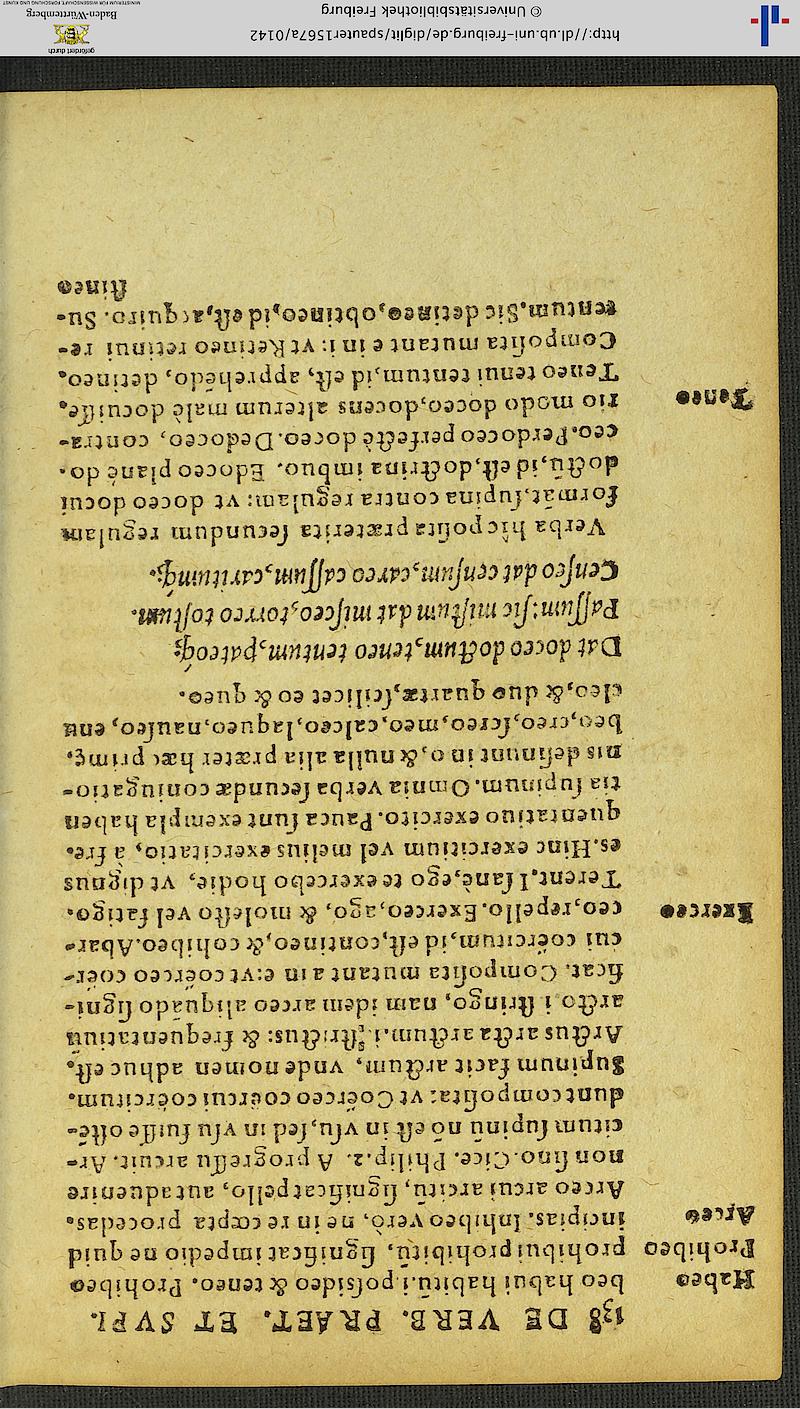 138 DE VERB. PRAET. ET SVPI.
Habeo
beo habui habitũ,i.possideo & teneo. Prohibeo
Prohibeo
prohibui prohibitũ, significat impedio ne quid
incipias. Inhibeo verò, ne in re cœpta procedas.
Arceo
Arceo arcui arcitũ, significat pello, aut adeuntire
non sino. Cice. Philip.2. A progressu arcuit. Ar-
citum supinũ nõ est in vsu, sed in vsu fuisse oste-
dunt composita: vt Coërceo coërcui coërcitum.
Supinum facit arctum, vnde nomen adhuc est,
Arctus arcta arctum,i. strictus: & frequentatiuũ
arcto i stringo, nam idem arceo aliquãdo signi-
ficat. Composita mutant a in e: vt coërceo coër-
cui coërcitum, id est, contineo, & cohibeo. Abar-
ceo, repello. Exerceo, ago, & molesto vel fatigo.
Exerceo
Terent. I sanè, ego te exercebo hodie, vt dignus
es. Hinc exercitium vel melius exercitatio, a fre-
quentatiuo exercito. Pauca sunt exempla haben
tia supinum. Omnia verba secundæ coniugatio-
nis desinunt in o, & nulla alia præter hæc primę,
beo, creo, screo, meo, calceo, laqueo, nauseo, enu
cleo, & duo quartæ, scilicet eo & queo.
Dat doceo doctum, teneo tentum, pateoq́;
Passum: sic mistum dat misceo, torreo tostum.
Censeo dat censum, careo cassum, caritumq́;.
Verba hîc posita præterita secundum regulam
format, supina contra regulam: vt doceo docui
doctũ, id est, doctrina imbuo. Edoceo planè do-
ceo. Perdoceo perfectè doceo. Dedoceo, contra-
rio modo doceo, docens alterum malè docuisse.
Teneo
Teneo tenui tentum, id est, apprehẽdo, detineo.
Composita mutant e in i: vt Retineo retinui re-
tentum. Sic detineo, obtineo, id est, acquiro. Su-
stineo
http://dl.ub.uni-freiburg.de/diglit/spauter1567a/0142
© Universitätsbibliothek Freiburg
gefördert durch
Baden-Württemberg
MINISTERIUM FÜR WISSENSCHAFT, FORSCHUNG UND KUNST